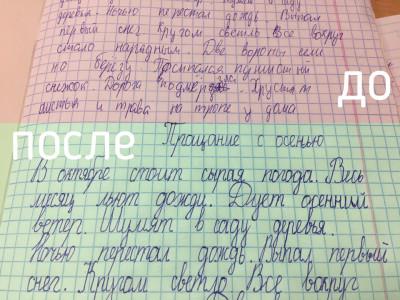 деревья. Ночью перестал дождь Выпал
первый снег кругом светль Все вокруг
стало нарядным. Две вороны сели
на берегу
снежок. Дорога подмёр
листья и трава на тропе у дома
до
после
Прощание с осенью
В октябре стоит сырая погода. Весь
месяц льют дожди. Дует осенний
ветер. Шумят в саду деревья.
Ночью перестал дождь. Выпал первый
снег. Кругом светло Все вокруг